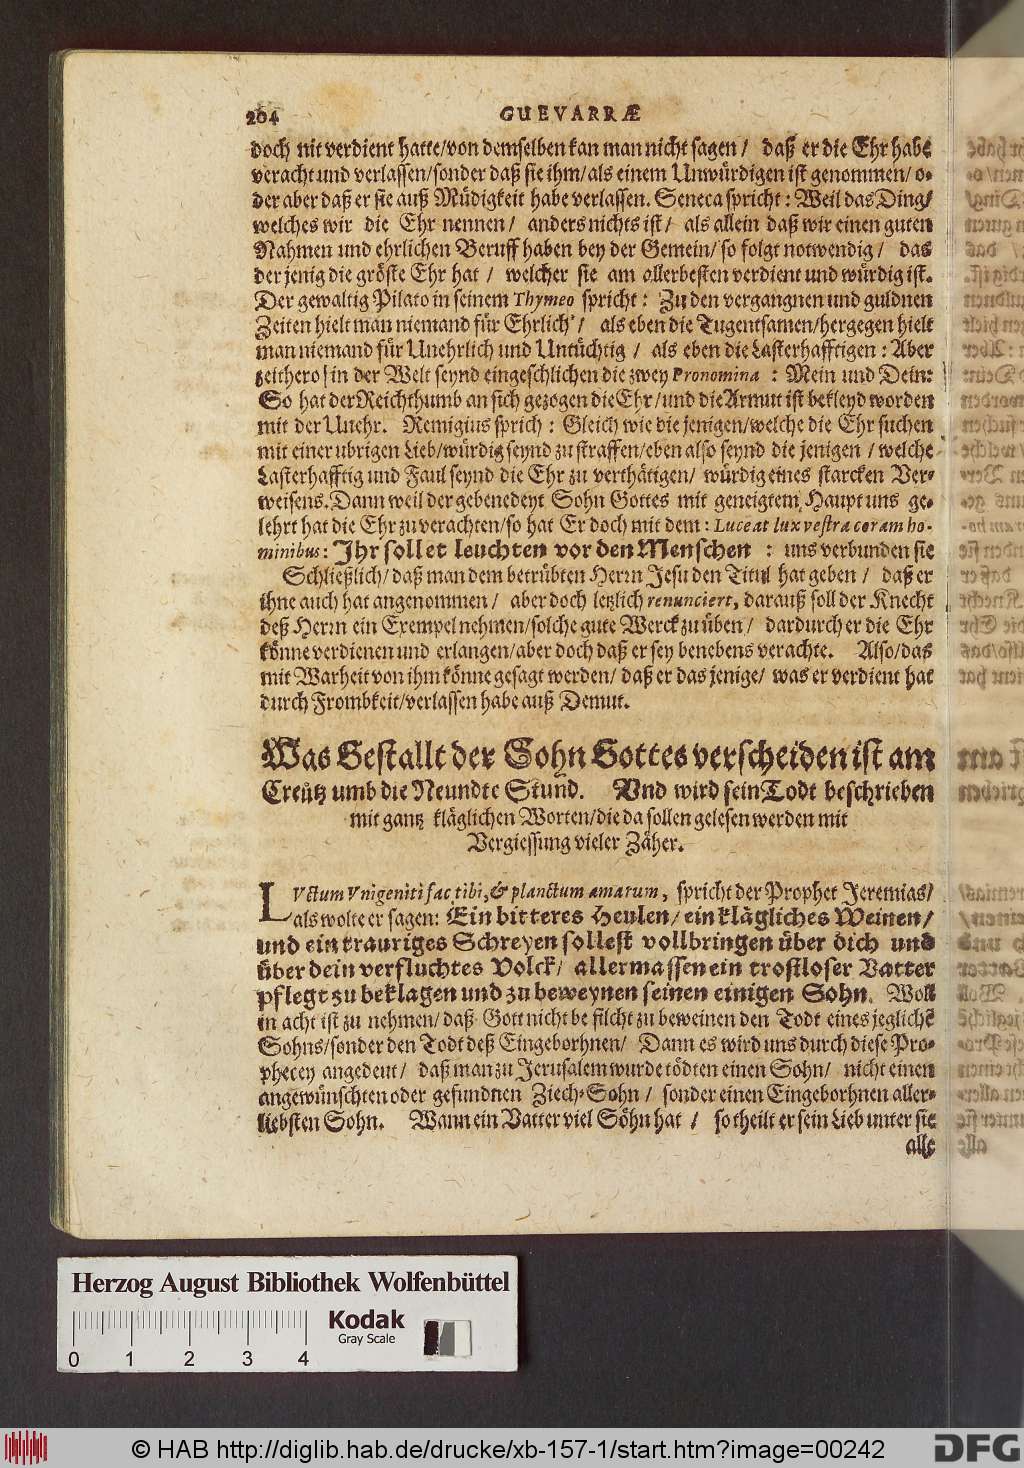 204 GUEVARRÆ
doch nit verdient hatte/von demselben kan man nicht sagen/ daß er die Ehr habe
veracht und verlassen/sonder daß sie ihm/als einem Unwürdigen ist genommen/o-
der aber daß er sie auß Müdigkeit habe verlassen. Seneca spricht: Weil das Ding/
welches wir die Ehr nennen/ anders nichts ist/ als allein daß wir einen guten
Nahmen und ehrlichen Beruff haben bey der Gemein/so folgt notwendig/ das
der jenig die gröste Ehr hat/ welcher sie am allerbesten verdient und würdig ist.
Der gewaltig Pilato in seinem Thymeo spricht: Zu den vergangnen und guldnen
Zeiten hielt man niemand für Ehrlich/ als eben die Tugentsamen/hergegen hielt
man niemand für Unehrlich und Untüchtig/ als eben die Lasterhafftigen: Aber
zeithero/in der Welt seynd eingeschlichen die zwey Pronomina: Mein und Dein:
So hat der Reichthumb an sich gezogen die Ehr/und die Armut ist bekleyd worden
mit der Unehr. Remigius sprich: Gleich wie die jenigen/welche die Ehr suchen
mit einer ubrigen Lieb/würdig seynd zu straffen/eben also seynd die jenigen/welche
Lasterhafftig und Faul seynd die Ehr zu verthätigen/ würdig eines starcken Ver-
weisens. Dann weil der gebenedeyt Sohn Gottes mit geneigtem Haupt uns ge-
lehrt hat die Ehr zu verachten/so hat Er doch mit dem: Luceat lux vestra coram ho-
minibus: Ihr sollet leuchten vor den Menschen: uns verbunden sie
Schließlich/daß man dem betrübten Herrn Jesu den Titul hat geben/ daß er
ihne auch hat angenommen/ aber doch letzlich renunciert, darauß soll der Knecht
deß Herrn ein Exempel nehmen/solche gute Werck zu üben/ dardurch er die Ehr
könne verdienen und erlangen/aber doch daß er sey benebens verachte. Also/das
mit Warheit von ihm könne gesagt werden/daß er das jenige/was er verdient hat
durch Frombkeit/verlassen habe auß Demut.
Was Gestallt der Sohn Gottes verscheiden ist am
Creütz umb die Neundte Stund. Und wird sein Todt beschrieben
mit gantz kläglichen Worten/die da sollen gelesen werden mit
Vergiessung vieler Zäher.
LUctum Unigeniti fac tibi, & planctum amarum, spricht der Prophet Jeremias/
als wolte er sagen: Ein bitteres Heulen/ein klägliches Weinen/
und ein trauriges Schreyen sollest vollbringen über dich und
über dein verfluchtes Volck/ allermassen ein trostloser Vatter
pflegt zu beklagen und zu beweynen seinen einigen Sohn. Woll
in acht ist zu nehmen/daß Gott nicht befilcht zu beweinen den Todt eines jegliche
Sohns/sonder den Todt deß Eingebornnen/ Dann es wird uns durch diese Pro-
phecey angedeut/ daß man zu Jerusalem wurde tödten einen Sohn/ nicht einen
angewünschten oder gefundnen Ziech-Sohn/ sonder einen Eingebornnen aller-
liebsten Sohn. Wann ein Vatter viel Söhn hat/ so theilt er sein Lieb unter sie
alle
Herzog August Bibliothek Wolfenbüttel
Kodak
Gray Scale
0 1 2 3 4
© HAB http://diglib.hab.de/drucke/xb-157-1/start.htm?image=00242
DFG